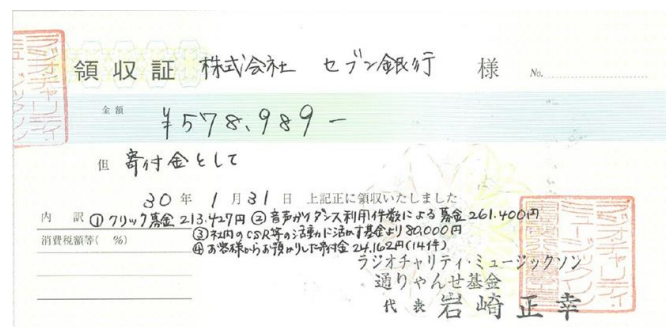 領収証 株式会社 セブン銀行 様 No.
金額 ¥578,989-
但 寄付金として
30年 1月31日 上記正に領収いたしました
内訳 ①クリック募金213.427円 ②音声ガイダンス利用件数による募金261.400円
消費税額等( %) ③社内のCSR等の活動に活かす基金より80,000円
④お客様からお預かりした寄付金24,162円(14件)
ラジオチャリティ・ミュージックソン
通りゃんせ基金
代表 岩崎正幸